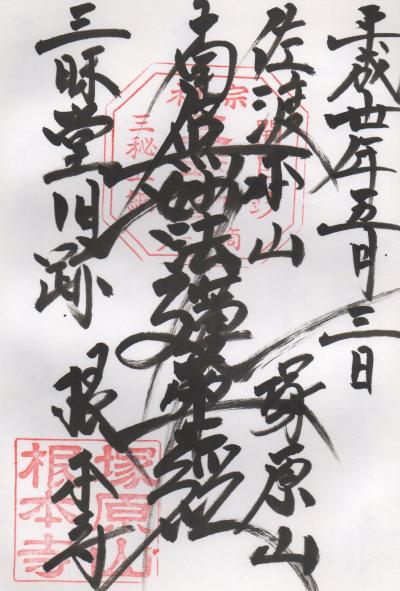 平成丗年五月三日
佐渡本山 塚原山
南無妙法蓮華経
三昧堂旧跡 根本寺
塚原山
根本寺